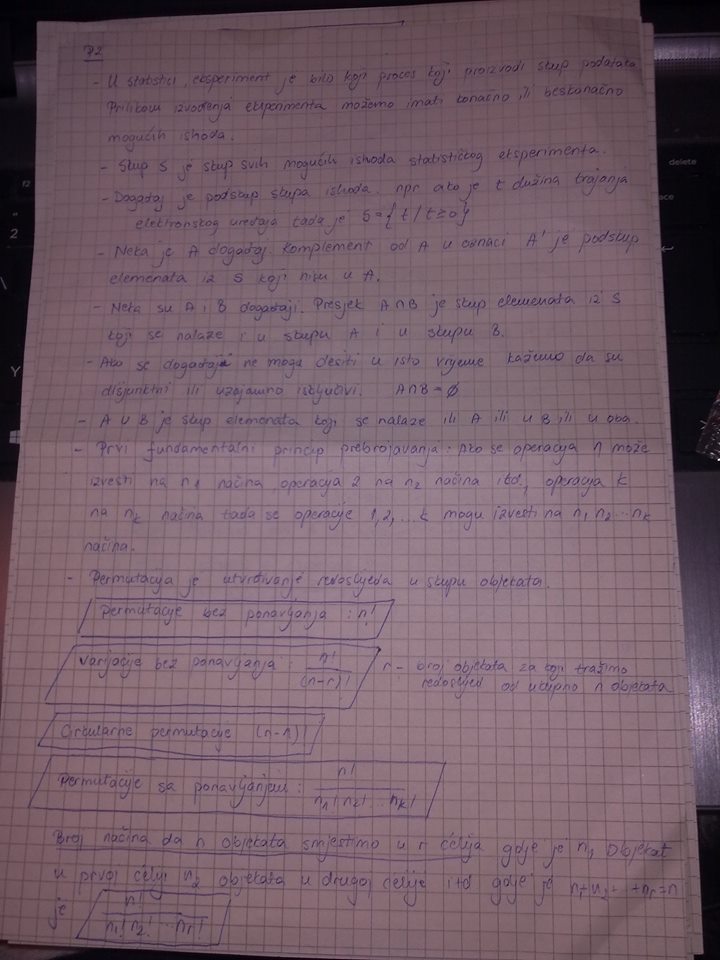 P2
- U statistici, eksperiment je bilo koji proces koji proizvodi skup podataka
Prilikom izvođenja eksperimenta možemo imati konačno ili beskonačno
mogućih ishoda.
- Skup S je skup svih mogućih ishoda statističkog eksperimenta.
- Događaj je podskup skupa ishoda. npr ako je t dužina trajanja
elektronskog uređaja tada je S = { t / t ≥ 0 }
- Neka je A događaj. Komplement od A u oznaci A' je podskup
elemenata iz S koji nisu u A.
- Neka su A i B događaji. Presjek A ∩ B je skup elemenata iz S
koji se nalaze i u skupu A i u skupu B.
- Ako se događaji ne mogu desiti u isto vrijeme kažemo da su
disjunktni ili uzajamno isključivi. A ∩ B = ∅
- A ∪ B je skup elemenata koji se nalaze ili A ili u B ili u oba.
- Prvi fundamentalni princip prebrojavanja: Ako se operacija 1 može
izvesti na n1 načina operacija 2 na n2 načina itd, operacija k
na nk načina tada se operacije 1, 2, ... k mogu izvesti na n1 n2 ... nk
načina.
- Permutacija je utvrđivanje redoslijeda u skupu objekata.
Permutacije bez ponavljanja : n!
Varijacije bez ponavljanja : n! / (n-r)! r - broj objekata za koji tražimo
redoslijed od ukupno n objekata
Cirkularne permutacije (n-1)!
Permutacije sa ponavljanjem : n! / n1! n2! ... nk!
Broj načina da n objekata smjestimo u r ćelija gdje je n1 objekat
u prvoj ćeliji n2 objekata u drugoj ćelije itd gdje je n1+n2+...+nr=n
je n! / n1! n2! ... nr!